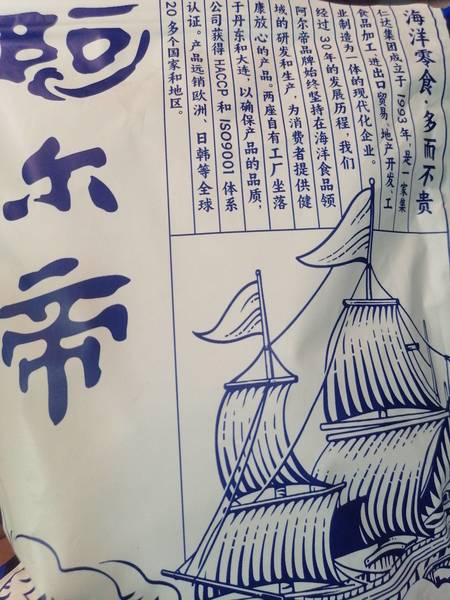 海洋零食·多而不贵
仁达集团成立于1993年,是一家集
食品加工、进出口贸易、地产开发、工
业制造为一体的现代化企业。
经过30年的发展历程,我们
阿尔帝品牌始终坚持在海洋食品领
域的研发和生产,为消费者提供健
康放心的产品。两座自有工厂坐落
于丹东和大连,以确保产品的品质,
公司获得HACCP和ISO9001体系
认证。产品远销欧洲、日韩等全球
20多个国家和地区。
阿尔帝